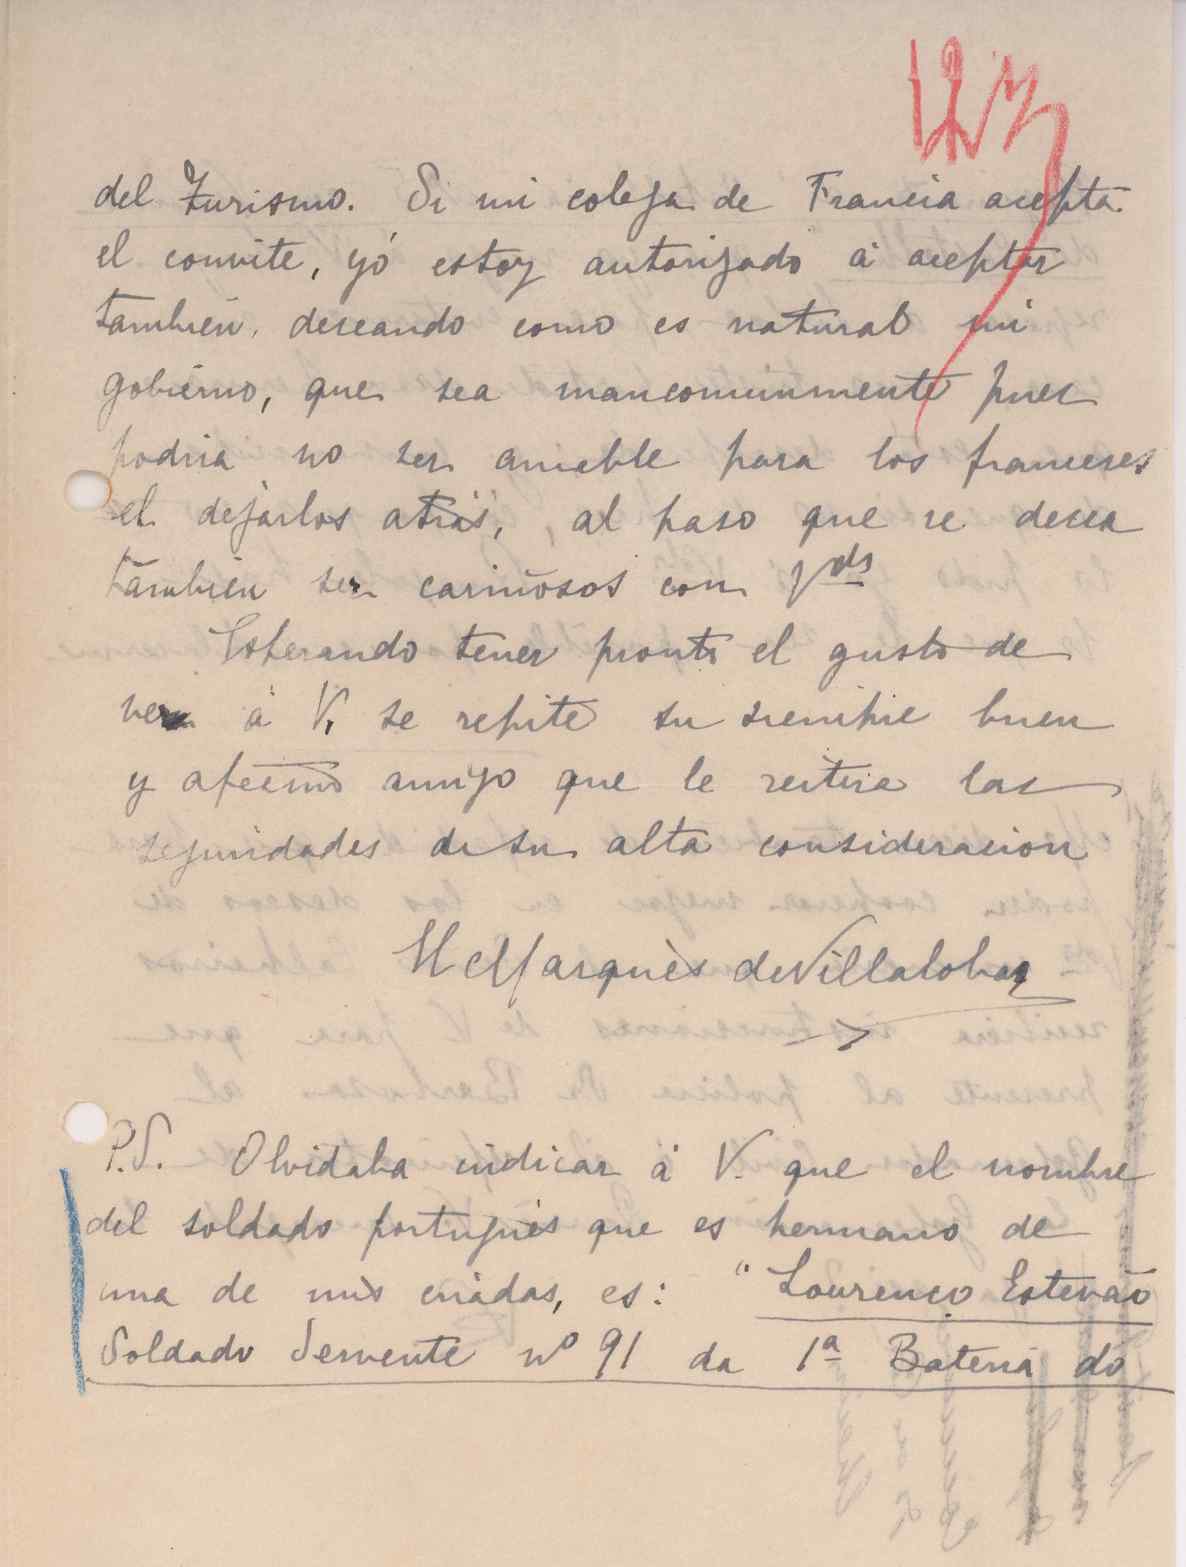 del Turismo. Si mi colega de Francia acepta
el convite, yó estoy autorizado á aceptar
tambien, deseando como es natural mi
gobierno, que sea mancomunmente pues
podria no ser amable para los franceses
el dejarlos atrás, al paso que se desea
tambien ser cariñosos con Vds
Esperando tener pronto el gusto de
ver á V, se repite su siempre buen
y afecmo amigo que le reitera las
seguridades de su alta consideracion
El Marqués de Villalobar
P.S. Olvidaba indicar á V. que el nombre
del soldado portugués que es hermano de
una de mis criadas, es: "Lourenço Estevão
Soldado Servente nº 91 da 1ª Bateria do